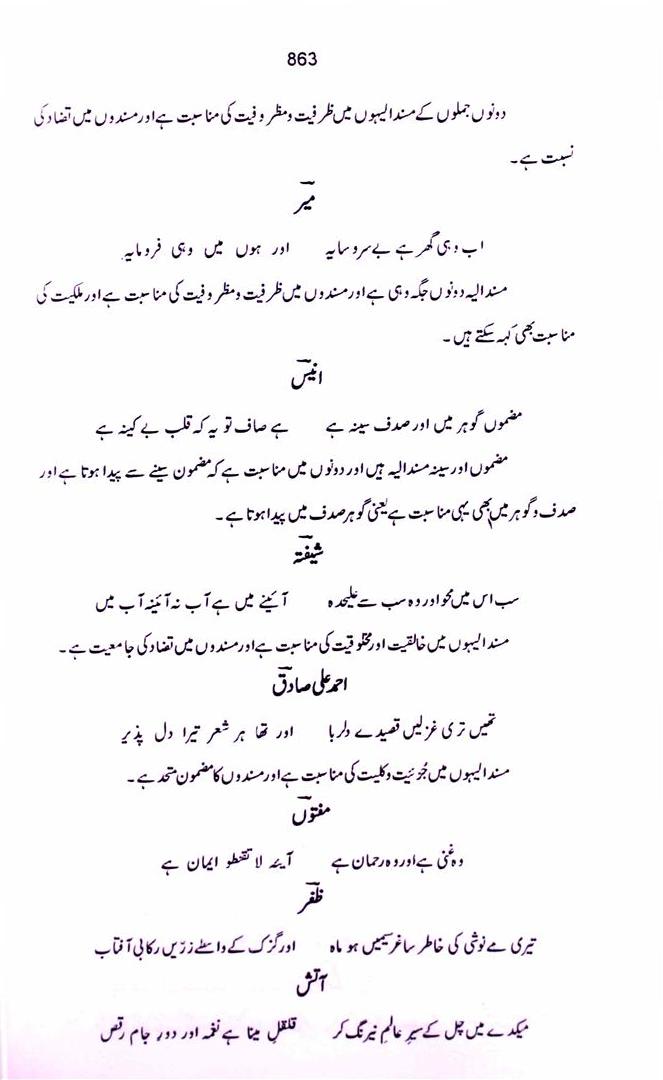 863
دونوں جملوں کے مسندالیہوں میں ظرفیت ومظروفیت کی مناسبت ہے اور مسندوں میں تضاد کی
نسبت ہے۔
میر
اب وہی گھر ہے بے سروسایہ اور ہوں میں وہی فرومایہ
مسندالیہ دونوں جگہ وہی ہے اور مسندوں میں ظرفیت ومظروفیت کی مناسبت ہے اور ملکیت کی
مناسبت بھی کہہ سکتے ہیں۔
انیس
مضموں گوہر میں اور صدف سینہ ہے ہے صاف تو یہ کہ قلب بے کینہ ہے
مضموں اور سینہ مسندالیہ ہیں اور دونوں میں مناسبت ہے کہ مضمون سینے سے پیدا ہوتا ہے اور
صدف وگوہر میں بھی یہی مناسبت ہے یعنی گوہر صدف میں پیدا ہوتا ہے۔
شیفتہ
سب اس میں محو اور وہ سب سے علیحدہ آئینے میں ہے آب نہ آئینہ آب میں
مسندالیہوں میں خالقیت اور مخلوقیت کی مناسبت ہے اور مسندوں میں تضاد کی جامعیت ہے۔
احمد علی صادق
تھیں تری غزلیں قصیدے دلربا اور تھا ہر شعر تیرا دل پذیر
مسندالیہوں میں جُزئیت وکلیت کی مناسبت ہے اور مسندوں کا مضمون متحد ہے۔
مفتوں
وہ غنی ہے اور وہ رحمان ہے آیۂ لا تقنطو ایمان ہے
ظفر
تیری مے نوشی کی خاطر ساغر سیمیں ہو ماہ اور گزک کے واسطے زرّیں رکابی آفتاب
آتش
میکدے میں چل کے سیرِ عالمِ نیرنگ کر قلقلِ مینا ہے نغمہ اور دورِ جام رقص